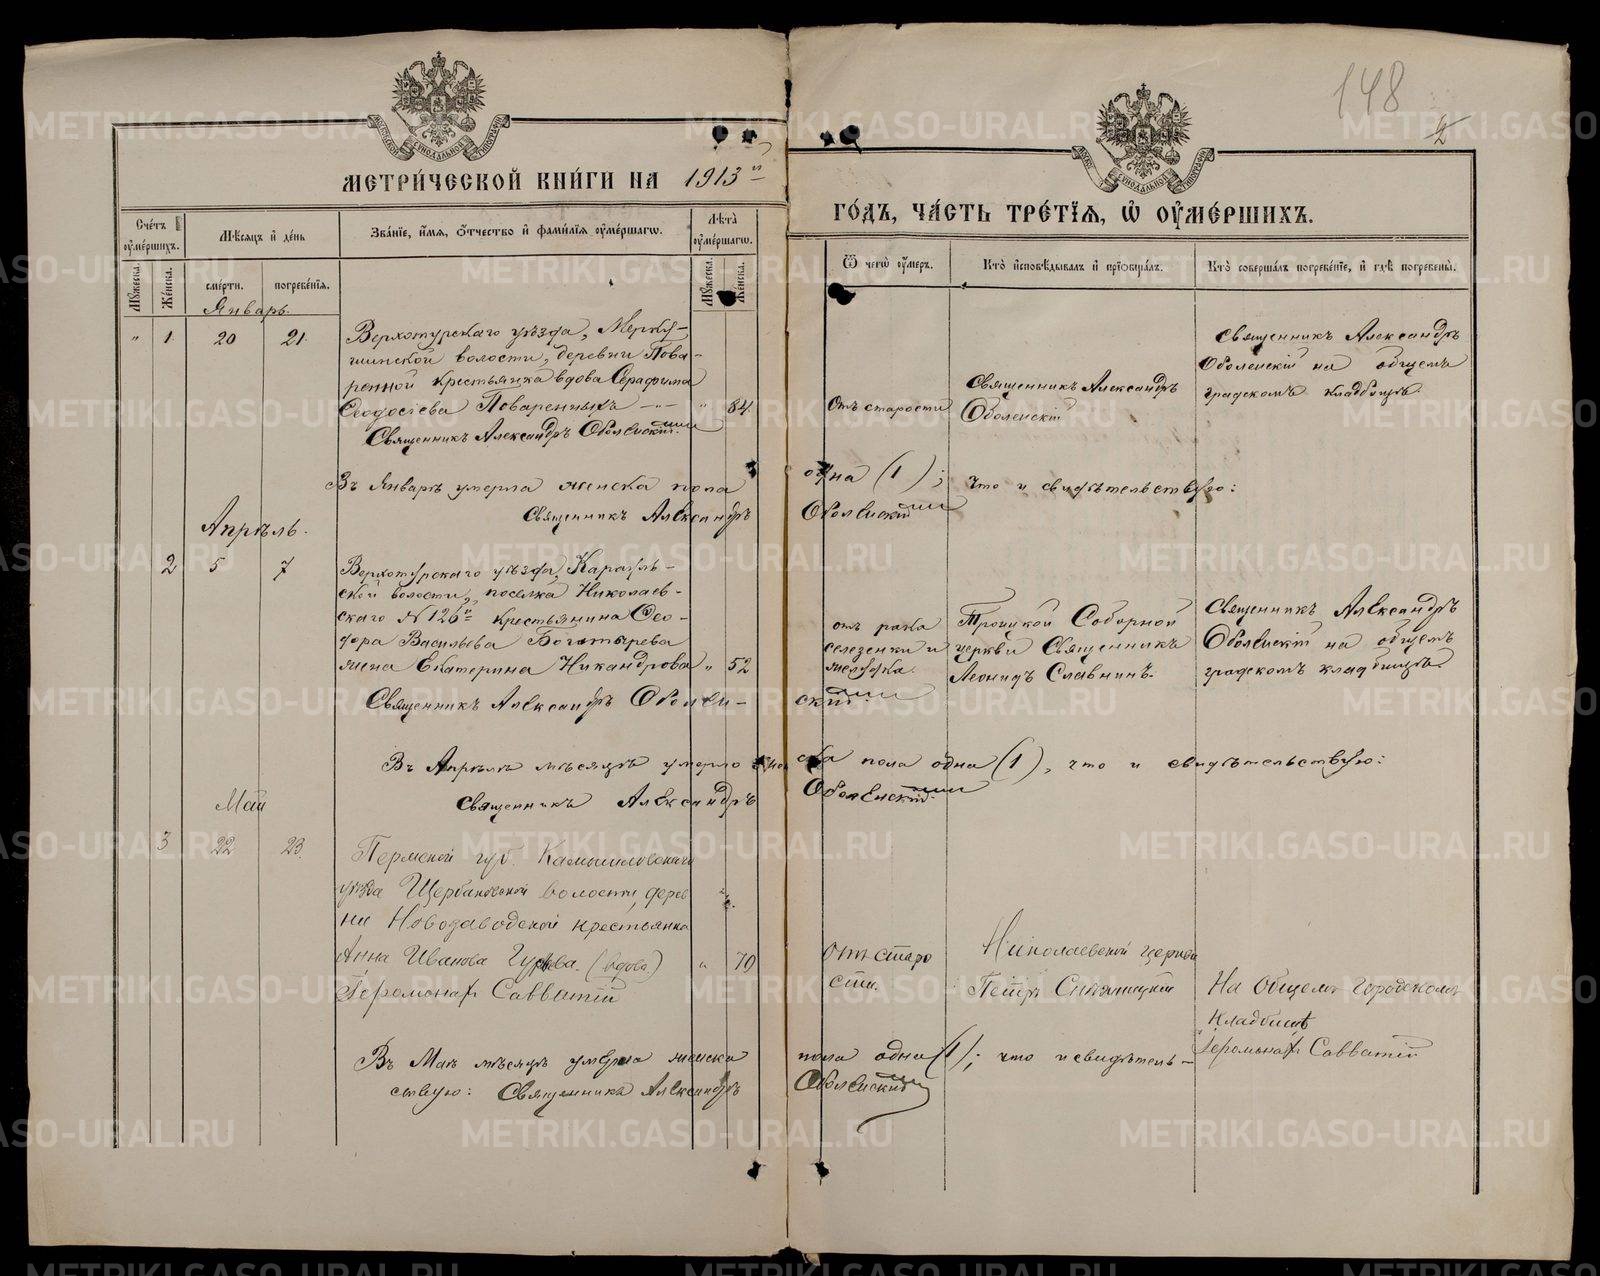 148
2
МЕТРИЧЕСКОЙ КНИГИ НА 1913 й
ГОДЪ, ЧАСТЬ ТРЕТІЯ, Ѡ ОУМЕРШИХЪ.
Счетъ оумершихъ.
Мѣсяцъ и день
Званіе, имя, отчество и фамилія оумершагѡ.
Лѣта оумершагѡ.
Мужеска.
Женска.
смерти.
погребенія.
Мужеска.
Женска.
Ѿ чегѡ оумеръ.
Кто исповѣдывалъ и пріобщалъ.
Кто совершалъ погребеніе, и гдѣ погребены.
Январь.
" 1 20 21.
Верхотурскаго уѣзда, Мерку-
шинской волости, деревни Пова-
ренной крестьянка вдова Серафима
Ѳеодосіева Поваренныхъ " 84.
Священникъ Александръ Оболенскій.
Отъ старости
Священникъ Александръ
Оболенскій
Священникъ Александръ
Оболенскій на общемъ
градскомъ кладбищѣ.
Въ Январѣ умерла женска пола одна (1); что и свидѣтельствую:
Священникъ Александръ Оболенскій
Апрѣль.
2 5 7
Верхотурскаго уѣзда, Карауль-
ской волости, поселка Николаев-
скаго №126й крестьянина Ѳео-
дора Васильева Богатырева
жена Екатерина Никандрова " 52
Священникъ Александръ Оболен-
скій.
отъ рака
селезенки и
желудка.
Троицкой Соборной
церкви Священникъ
Леонидъ Славнинъ.
Священникъ Александръ
Оболенскій на общемъ
градскомъ кладбищѣ.
Въ Апрѣлѣ мѣсяцѣ умерло женска пола одна (1), что и свидѣтельствую:
Священникъ Александръ Оболенскій.
Май
3 22 23.
Пермской губ. Камышловскаго
уѣзда Щербаковской волости, дерев
ни Новозаводской крестьянка
Анна Иванова (вдова.) " 70
Іеромонах Савватій
Отъ старо
сти.
Николаевской церкви
Петръ
На Общемъ городскомъ
кладбищѣ
Іеромонах Савватій
Въ Маѣ мѣсяцѣ умерла женска пола одна (1); что и свидѣтель-
ствую: Священникъ Александръ Оболенскій
METRIKI.GASO-URAL.RU